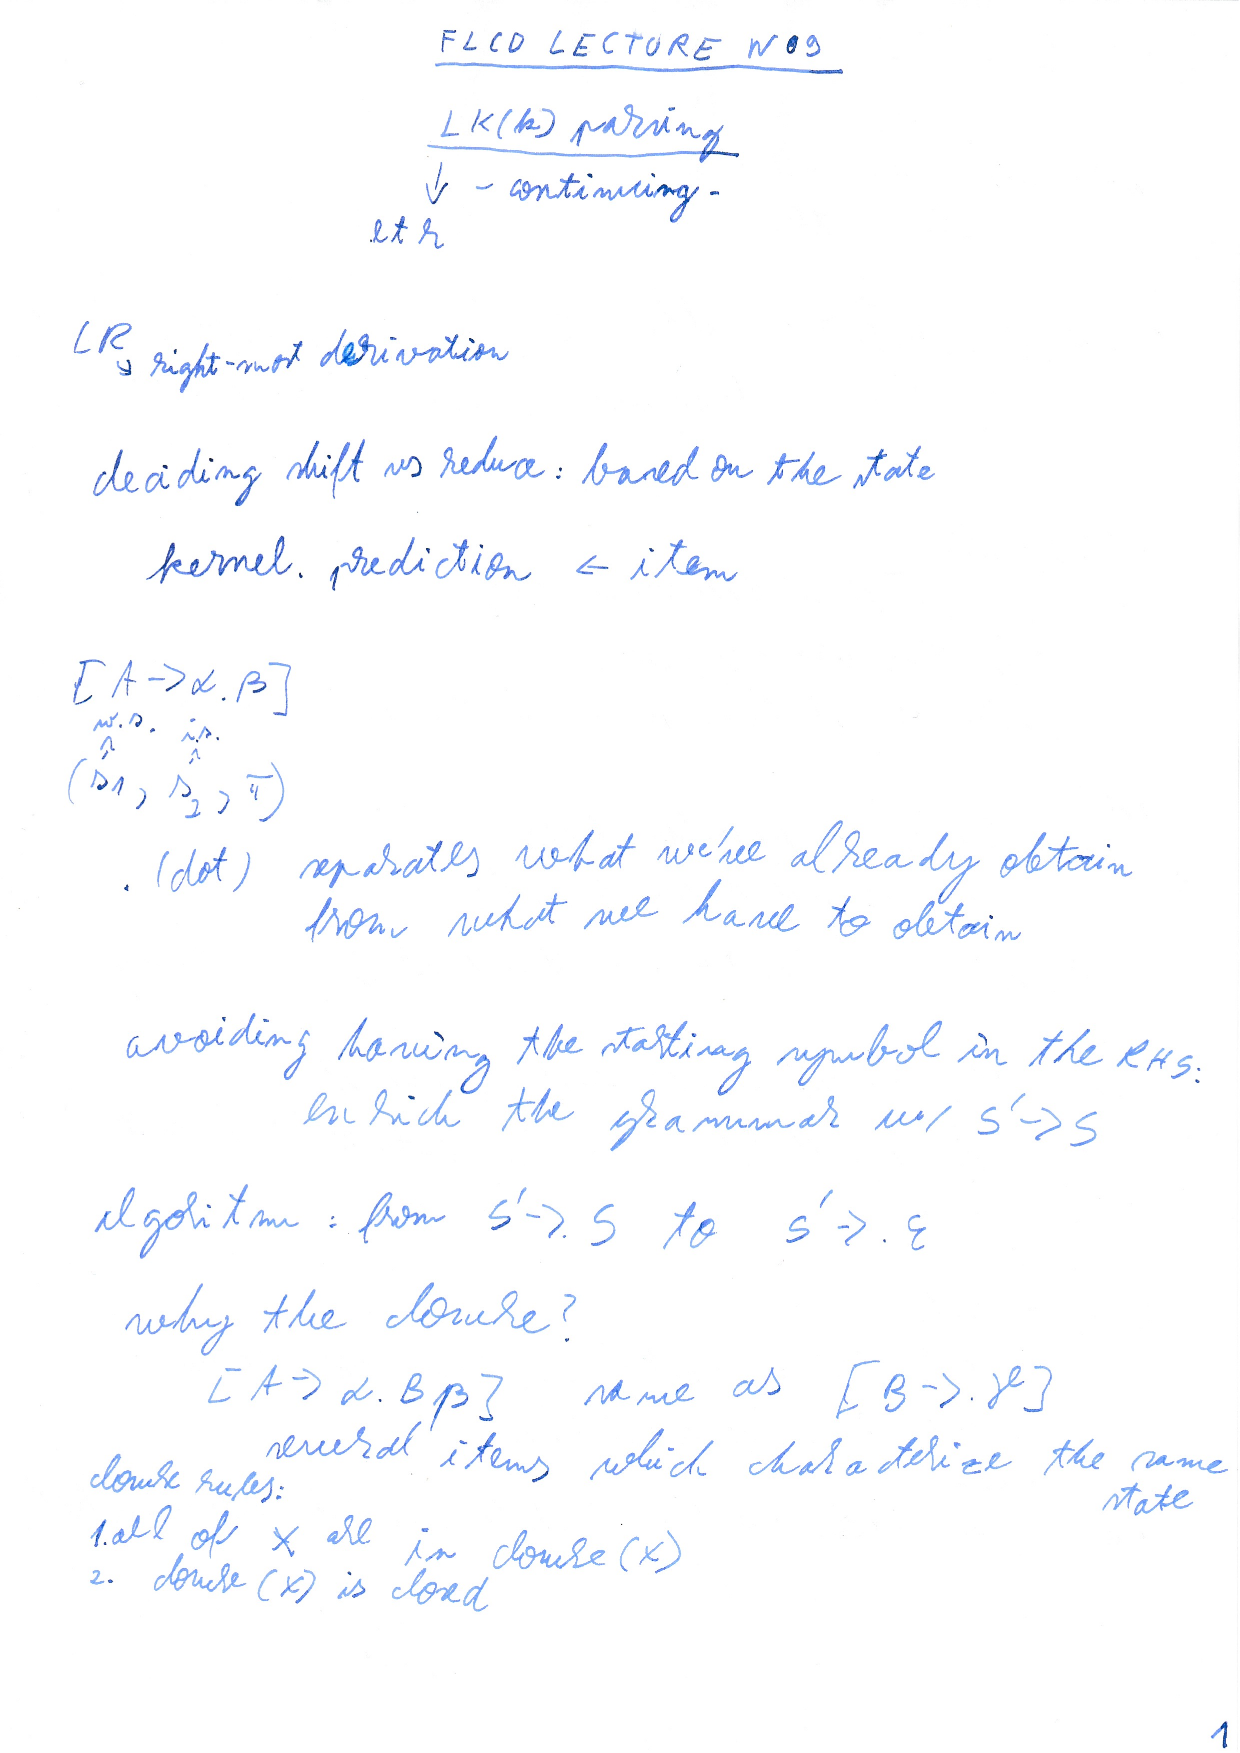 FLCD LECTURE N09
LR(k) parsing
↓ - continuing -
l t r
LR
↘ right-most derivation
deciding shift vs reduce: based on the state
kernel. prediction ← item
[A -> α.β]
w.s. i.s.
(s1, s2, π)
. (dot) separates what we've already obtain
from what we have to obtain
avoiding having the starting symbol in the RHS:
enrich the grammar w/ S' -> S
algoritm: from S' ->. S to S' ->. ε
why the closure?
[A -> α.Bβ] same as [B ->.γ]
several items which characterize the same
state
closure rules:
1. all of X are in closure(X)
2. closure(X) is closed
1